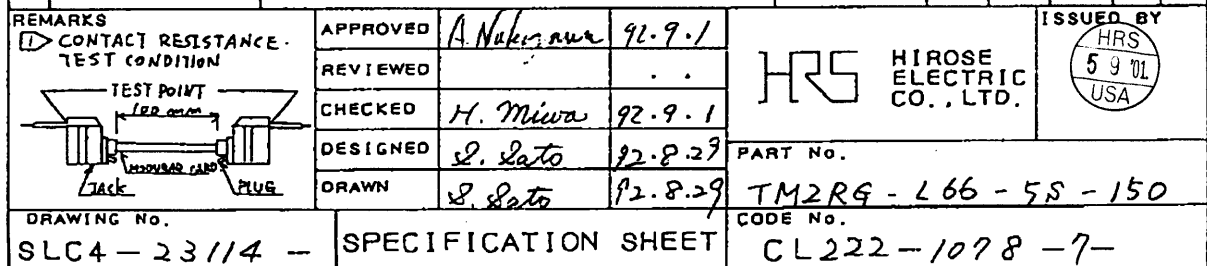 REMARKS
1 CONTACT RESISTANCE.
TEST CONDITION
TEST POINT
100 mm
MODULAR CORD
JACK
PLUG
APPROVED 92.9.1
REVIEWED . .
CHECKED H. Miwa 92.9.1
DESIGNED S. Sato 92.8.29
DRAWN S. Sato 92.8.29
HRS
HIROSE
ELECTRIC
CO., LTD.
ISSUED BY
HRS
5 9 '01
USA
PART No.
TM2RG-L66-5S-150
DRAWING No.
SLC4-23114 -
SPECIFICATION SHEET
CODE No.
CL222-1078-7-